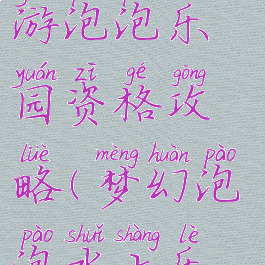 游泡泡乐
yuán zī gé gōng
园资格攻
lüè mèng huàn pào
略(梦幻泡
pào shuǐ shàng lè
泡水上乐